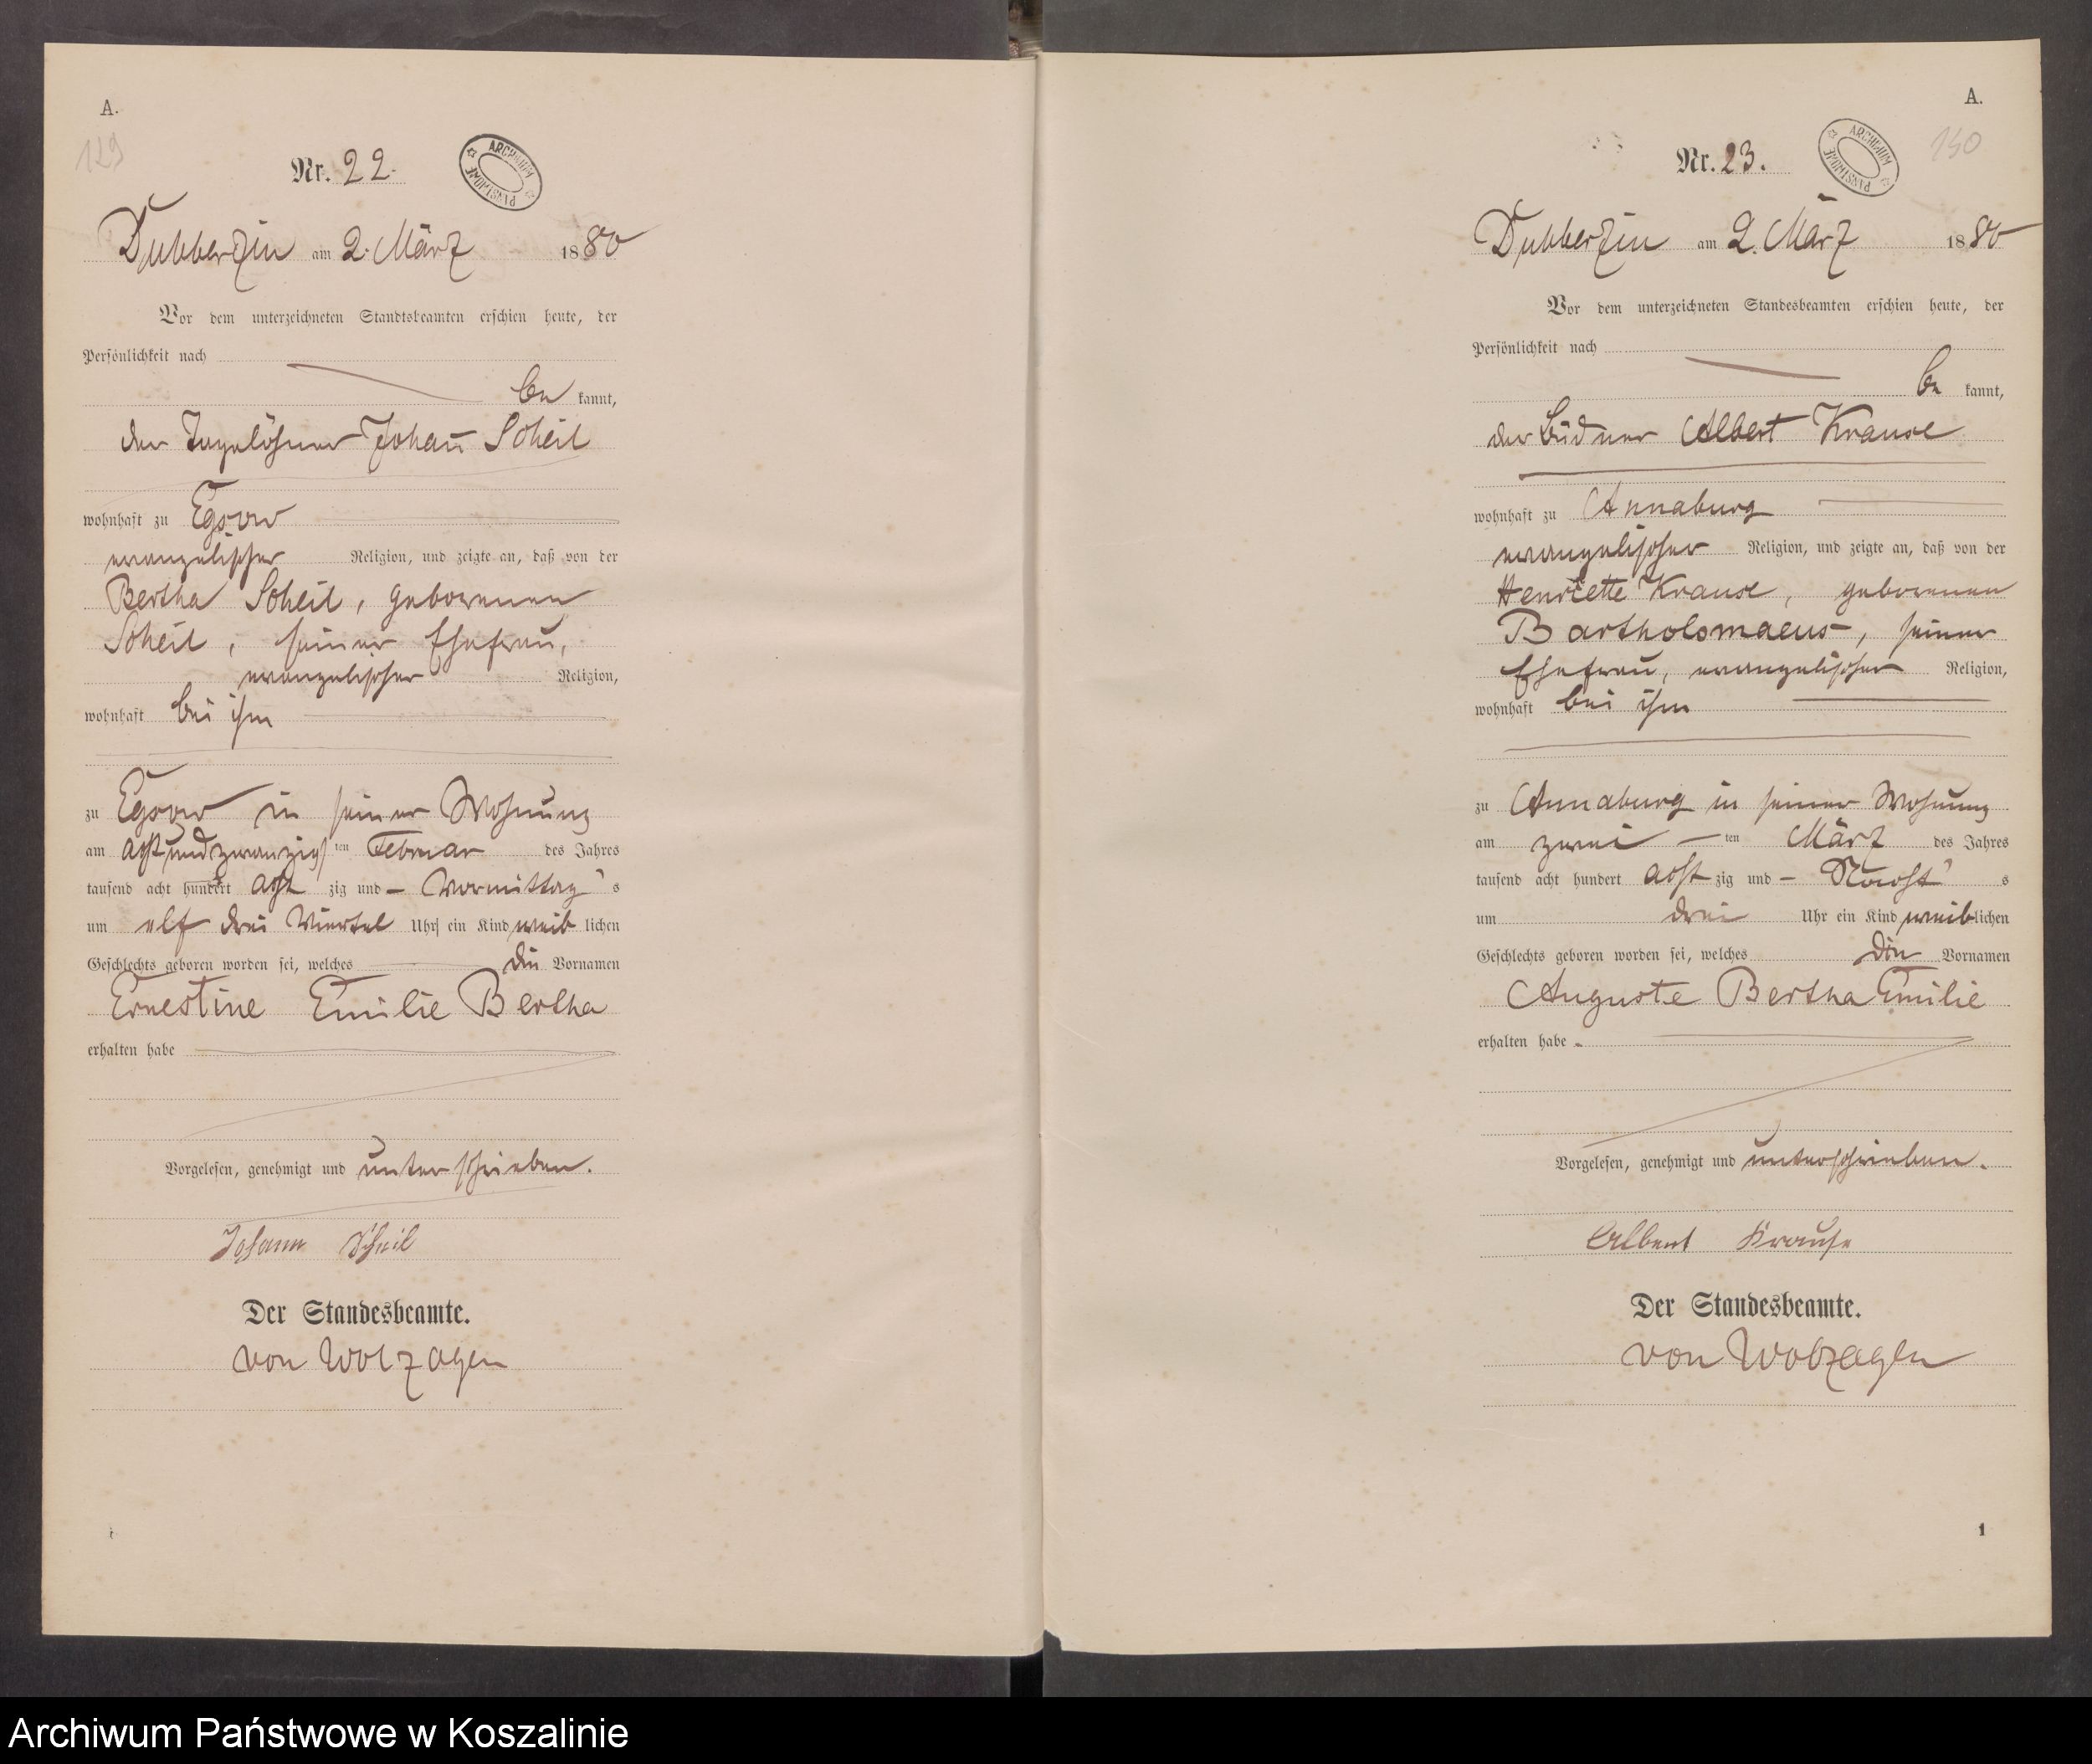 A.
129
Nr. 22.
ARCHIWUM PAŃSTWOWE
Dubberzin am 2. März 1880
Vor dem unterzeichneten Standtsbeamten erschien heute, der
Persönlichkeit nach
be kannt,
der Tagelöhner Johann Scheil
wohnhaft zu Egsow
evangelischer Religion, und zeigte an, daß von der
Bertha Scheil, geborenen
Scheil, seiner Ehefrau,
evangelischer Religion,
wohnhaft bei ihm
zu Egsow in seiner Wohnung
am achtundzwanzigsten Februar des Jahres
tausend acht hundert acht zig und – Vormittag s
um elf drei Viertel Uhr ein Kind weib lichen
Geschlechts geboren worden sei, welches die Vornamen
Ernestine Emilie Bertha
erhalten habe
Vorgelesen, genehmigt und unterschrieben.
Johann Scheil
Der Standesbeamte.
von Wolzogen
A.
150
Nr. 23.
ARCHIWUM PAŃSTWOWE
Dubberzin am 2. März 1880
Vor dem unterzeichneten Standesbeamten erschien heute, der
Persönlichkeit nach
be kannt,
der Büdner Albert Krause
wohnhaft zu Annaburg
evangelischer Religion, und zeigte an, daß von der
Henriette Krause, geborenen
Bartholomaeus, seiner
Ehefrau, evangelischer Religion,
wohnhaft bei ihm
zu Annaburg in seiner Wohnung
am zwei – ten März des Jahres
tausend acht hundert acht zig und – Nacht s
um drei Uhr ein Kind weiblichen
Geschlechts geboren worden sei, welches die Vornamen
Auguste Bertha Emilie
erhalten habe
Vorgelesen, genehmigt und unterschrieben.
Albert Krause
Der Standesbeamte.
von Wolzogen
1
Archiwum Państwowe w Koszalinie